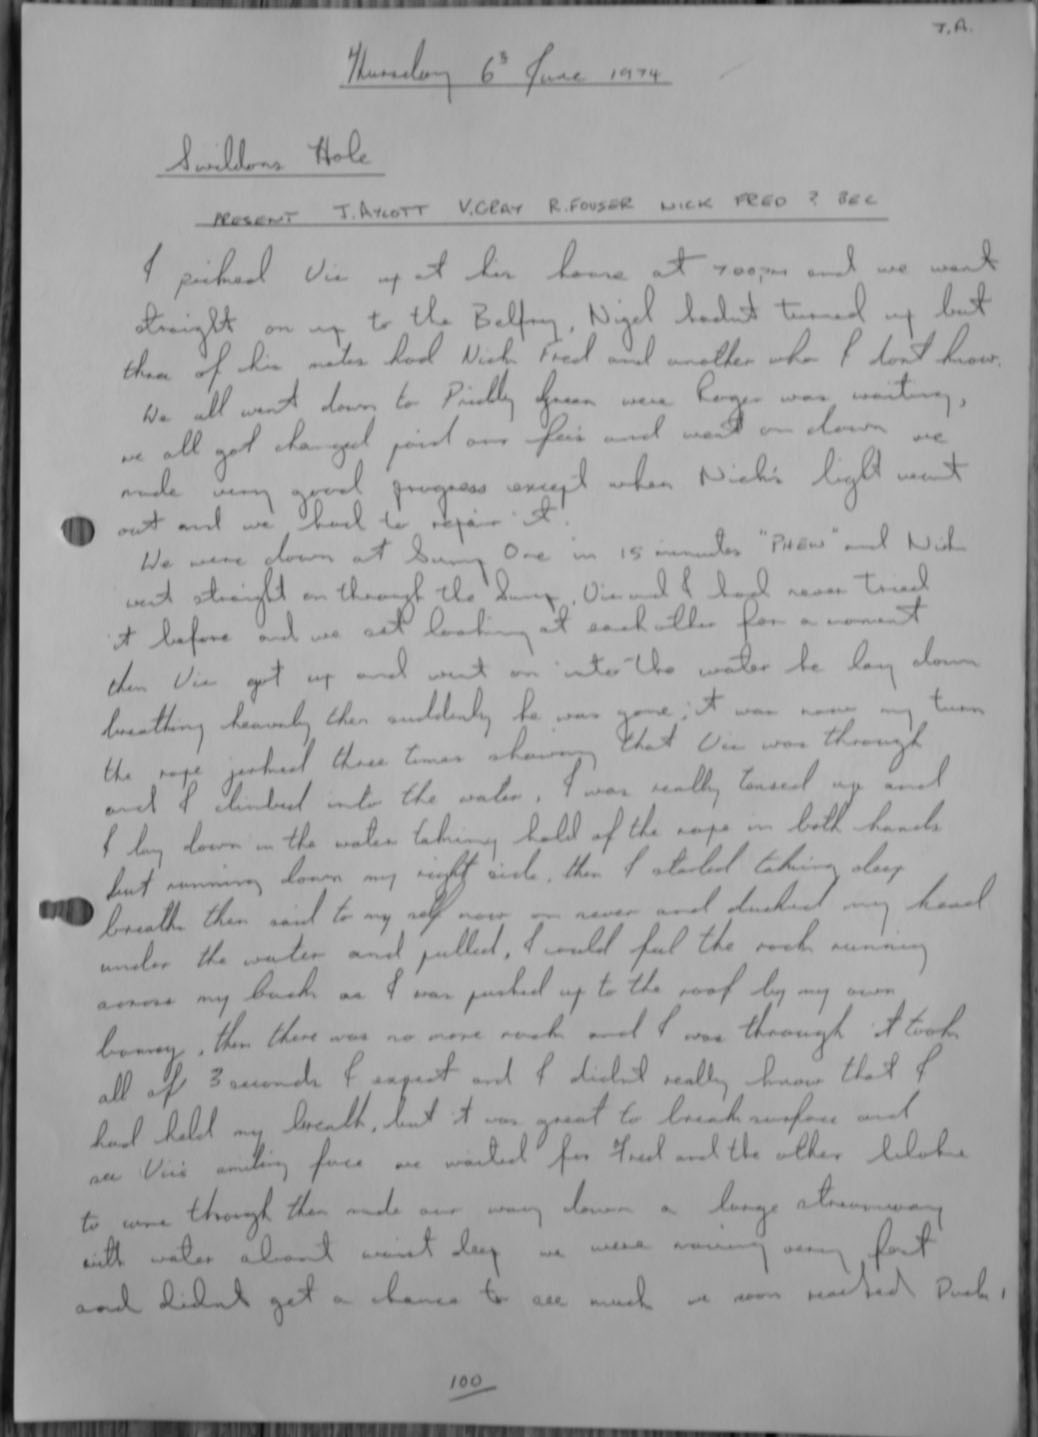 J.A.
Thursday 6th June 1974
Swildons Hole
PRESENT J.AYLOTT V.GRAY R.FOUSER NICK FRED ? BEC
I picked Vic up at his house at 7 00pm and we went
straight on up to the Belfry, Nigel hadnt turned up but
three of his mates had Nick Fred and another who I dont know.
We all went down to Priddy Green were Roger was waiting,
we all got changed paid our fees and went on down we
made very good progress except when Nick's light went
out and we had to repair it.
We were down at Sump One in 15 minutes "PHEW" and Nick
went straight on through the Sump, Vic and I had never tried
it before and we sat looking at each other for a moment
then Vic got up and went on into the water he lay down
breathing heavenly then suddenly he was gone, it was now my turn
the rope jerked three times showing that Vic was through
and I climbed into the water, I was really tensed up and
I lay down in the water taking hold of the rope in both hands
but running down my right side, then I started taking deep
breaths then said to my self now or never and ducked my head
under the water and pulled, I could feel the rock running
across my back as I was pushed up to the roof by my own
, then there was no more rock and I was through it took
all of 3 seconds I expect and I didnt really know that I
had held my breath, but it was great to break surface and
see Vic's smiling face we waited for Fred and the other bloke
to come through then made our way down a large streamway
with water about waist deep we were moving very fast
and didnt get a chance to see much we soon reached Duck 1
100